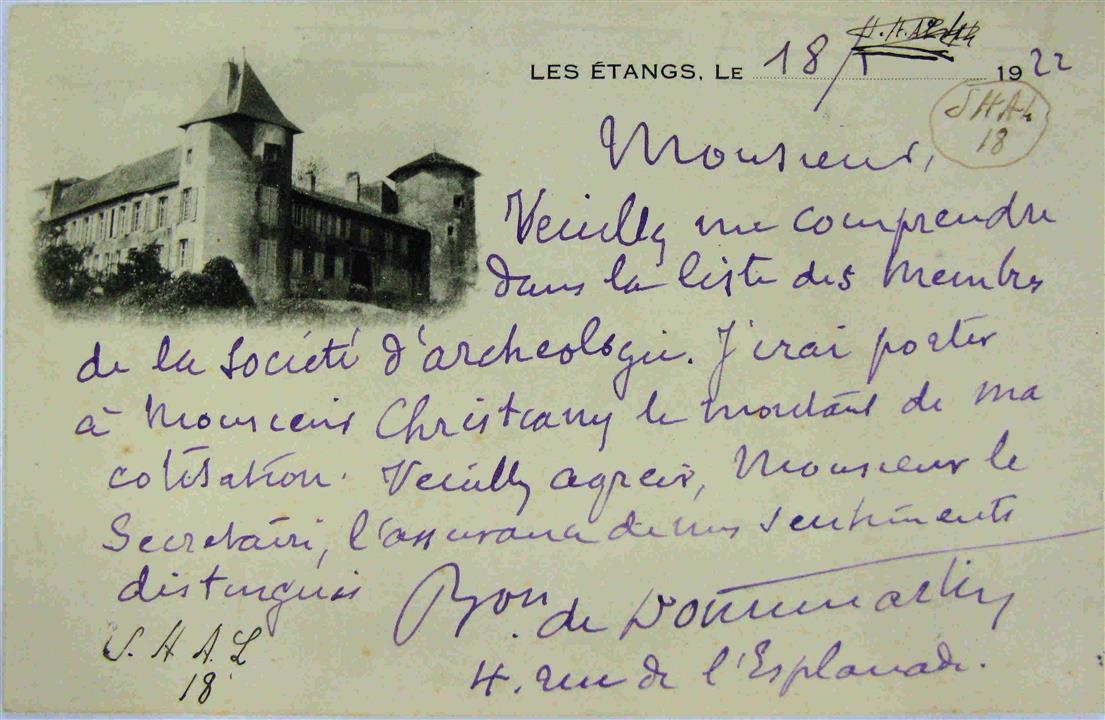 LES ÉTANGS, LE 18/1 1922
SHAL
18
Monsieur,
Veuillez me comprendre
dans la liste des membres
de la Société d'archeologie. J'irai porter
à Monsieur Christiany le montant de ma
cotisation. Veuillez agréer, Monsieur le
Secretaire, l'assurance de mes sentiments
distingués
Bon. de Dommartin
S. H A. L
18
4. rue de l'Esplanade.